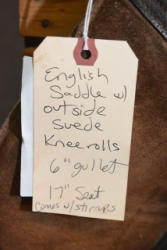 English
Saddle w/
outside
suede
Kneerolls
6" gullet
17" Seat
comes w/stirrups